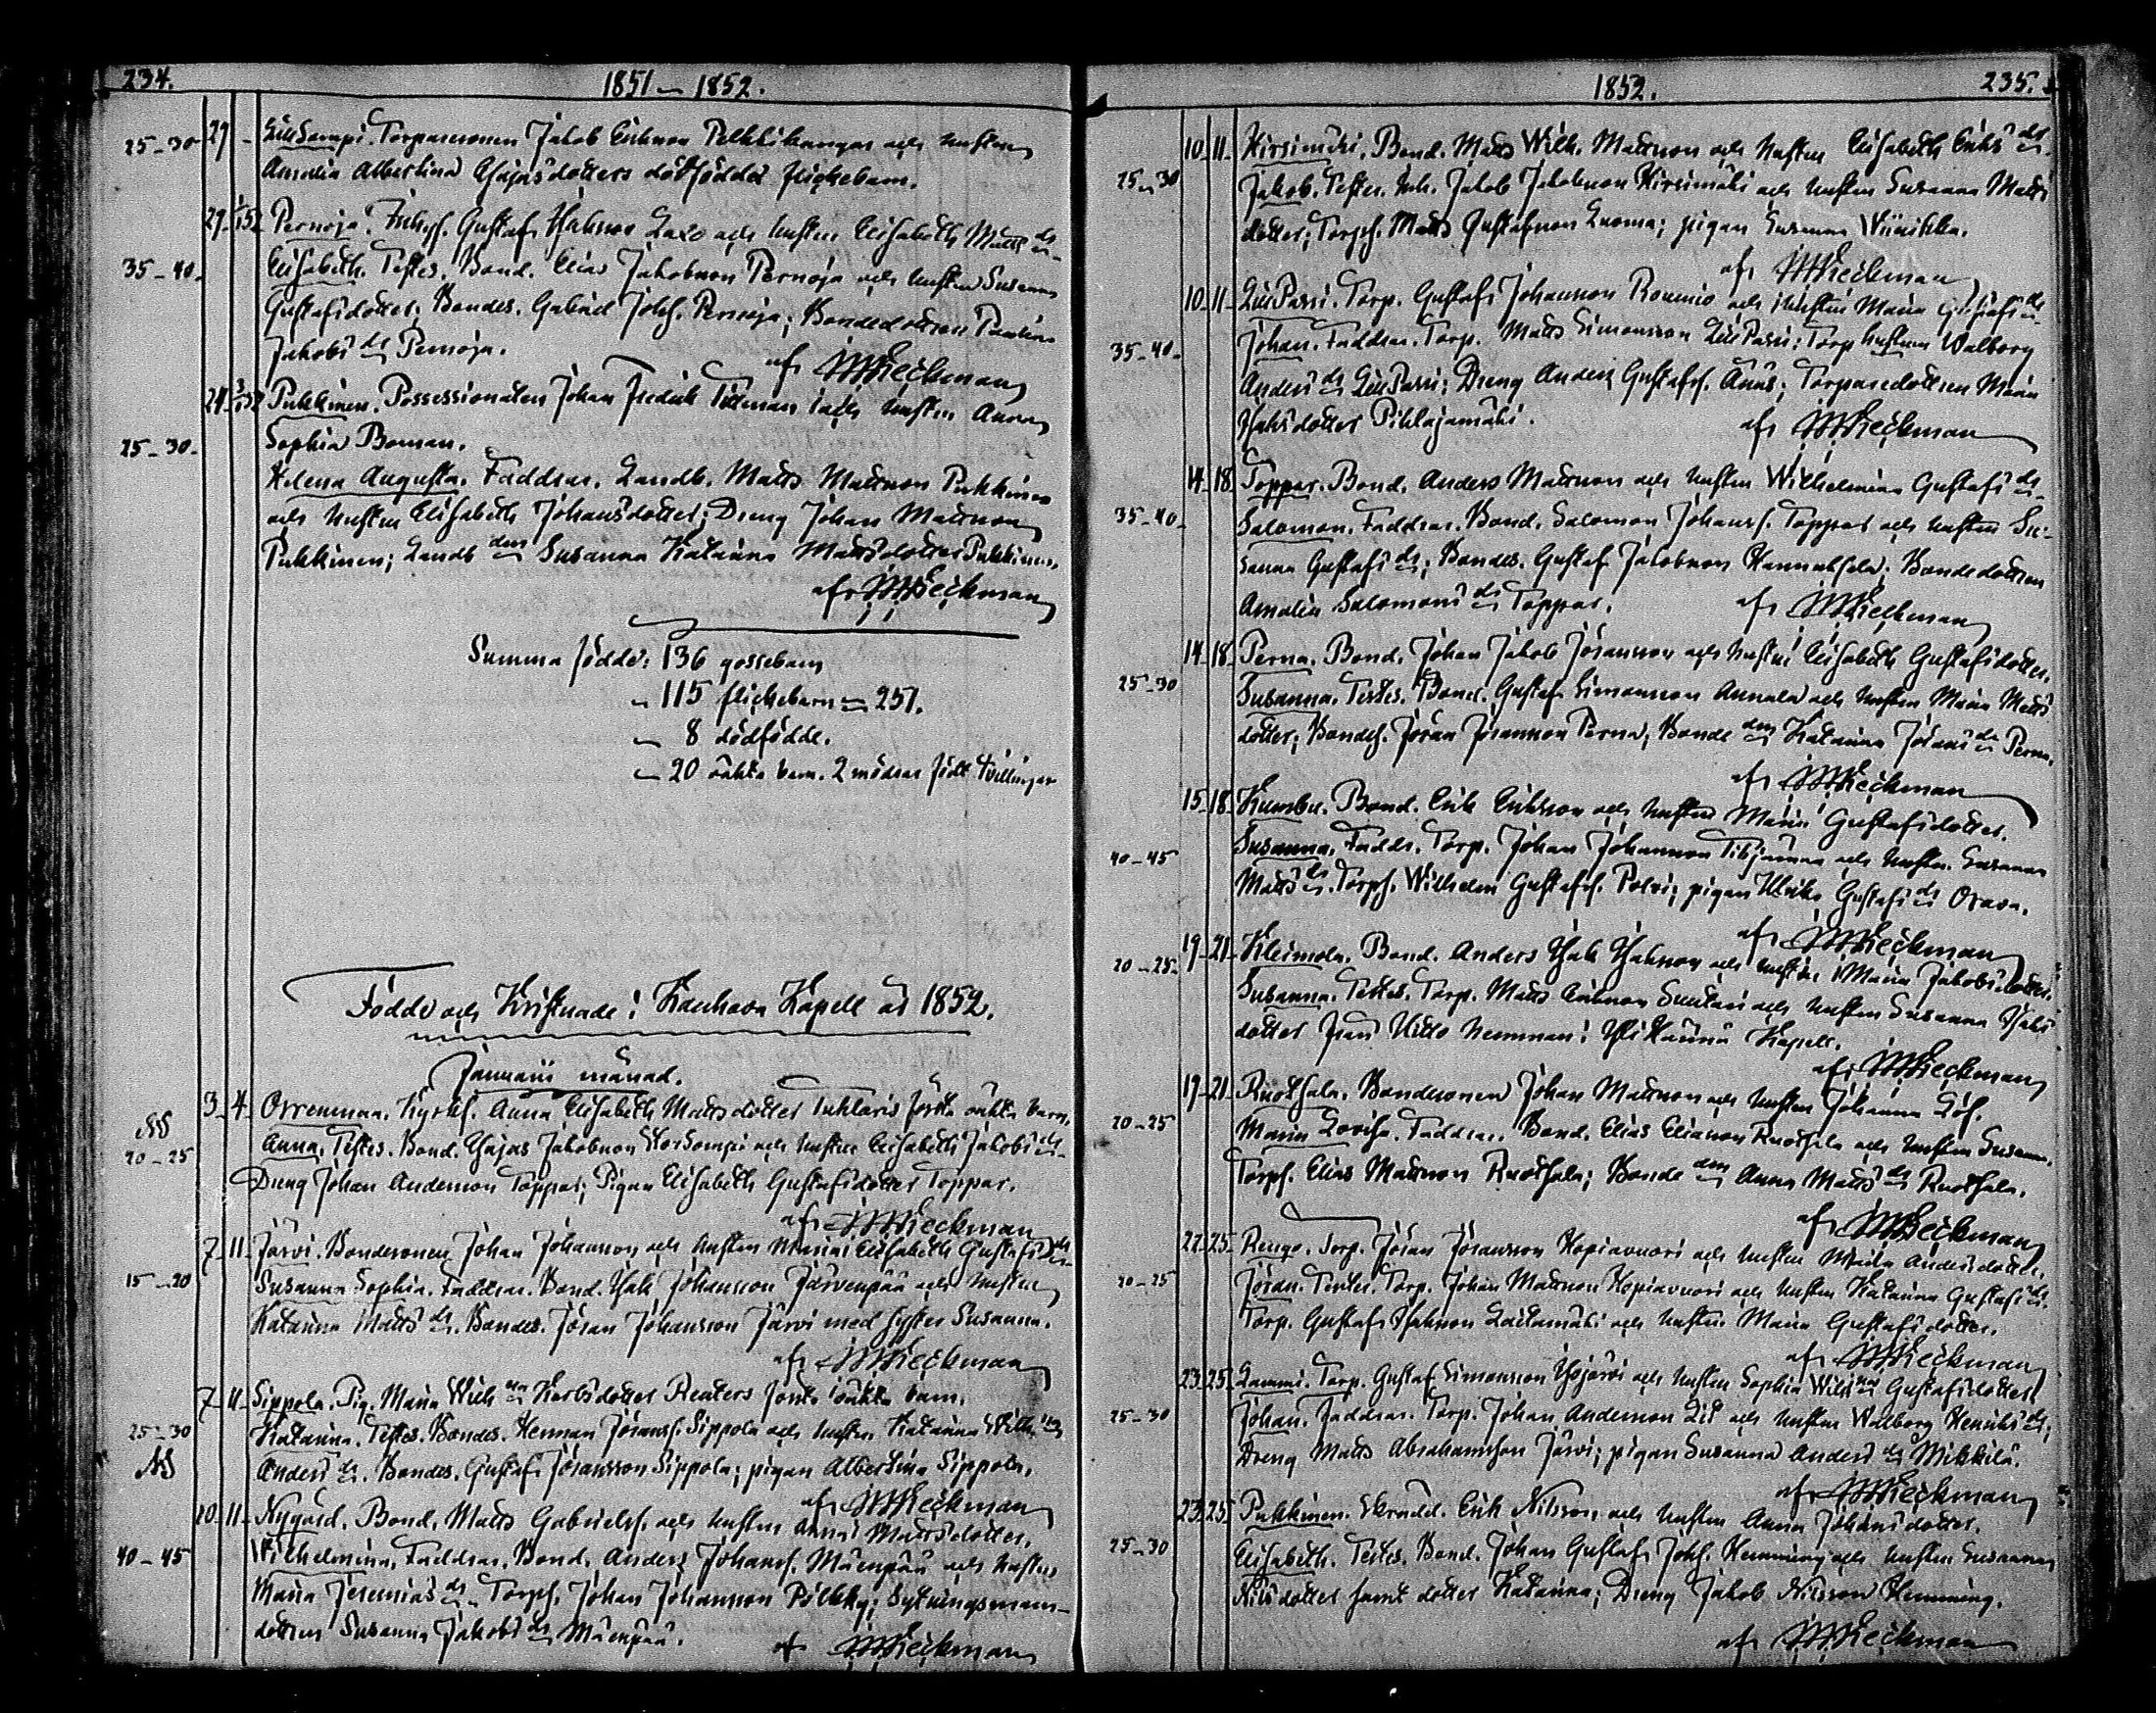 234.
1851 — 1852.
25-30 29 - Lill Sorvopi. Torparesonen Jakob Eriksson Pelkkikangas och hustrun
Amalia Albertina Esajasdotters dödfödde flickebarn.
29 1/1 52 Pernoja. Inhys. Gustaf Isaksson Laxo och hustrun Elisabeth Matts dr
35-40 Elisabeth. Testes. Bond. Elias Jakobsson Pernoja och hustrun Susanna
Gustafsdotter; Bondes. Gabriel Johss. Pernoja; Bondedottren Paulina
Jakobs dr Pernoja.
af J M Keckman
29 52 Pukkinen. Possessionaten Johan Fredrik Tillman och hustrun Anna
25-30 Sophia Boman.
Helena Augusta. Faddrar. Landb. Matts Mattsson Pukkinen
och hustrun Elisabeth Johansdotter; Dreng Johan Mattsson
Pukkinen; Landb dren Susanna Katarina Mattsdotter Pukkinen.
af Keckman
Summa födde: 136 gossebarn
" 115 flickebarn = 251.
" 8 dödfödde.
" 20 oäkta barn. 2 mödrar födt tvillingar
Födde och Kristnade i Kauhava Kapell år 1852.
Januarii månad.
3 - 4 Orrenmaa. Kyrkh. Anna Elisabeth Mattsdotter Tuhlaris första oäkta barn.
20-25 Anna. Testes. Bond. Esajas Jakobsson och hustrun Elisabeth Jakobs dr
Dreng Johan Andersson Toppar; Pigan Elisabeth Gustafsdotter Toppar.
af Keckman
7 - 11 Järvi. Bondesonen Johan Johansson och hustrun Maria Elisabeth Gustafs dr
15-20 Susanna Sophia. Faddrar. Bond. Isak Johansson Järvenpää och hustrun
Katarina Matts dr. Bondes. Jöran Johansson Järvi med syster Susanna.
af Keckman
7 - 11 Sippola. Pig. Maria Wilh na Karlsdotter Reuters första oäkta barn.
25-30 Katarina. Testes. Bondes. Herman Jöranss. Sippola och hustrun Katarina Wilh na
Anders dr. Bondes. Gustaf Jöransson Sippola; pigan Albertina Sippola.
af Keckman
10 - 11 Nygård. Bond. Matts Gabrielss. och hustrun Anna Mattsdotter.
40-45 Wilhelmina. Faddrar. Bond. Anders Johanss. Mäenpää och hustrun
Maria Jeremias dr Torps. Johan Johansson Pölkky; Sytningsmans-
dottren Susanna Jakobs dr Mäenpää.
af Keckman
1852.
235.
10 - 11 Hirsimäki. Bond. Matts Wilh. Mattsson och hustrun Elisabeth Eriks dr
25-30 Jakob. Testes. Inh. Jakob Jakobsson Hirsimäki och hustrun Susanna Matts
dotter; Torps. Matts Gustafsson Luoma; pigan Susanna Wiinikka.
af Keckman
10 - 11 Lill Passi. Torp. Gustaf Johansson Rounio och hustrun Maria Gustafs dr
35-40 Johan. Faddrar. Torp. Matts Simonsson Lill Passi; Torp. hustrun Walborg
Anders dr Lill Passi; Dreng Anders Gustafss. Ånäs; Torparedottren Maria
Isaksdotter Pihlajamäki.
af Keckman
14 - 18 Toppar. Bond. Anders Mattsson och hustrun Wilhelmina Gustafs dr
35-40 Salomon. Faddrar. Bond. Salomon Johanss. Toppar och hustrun Su-
sanna Gustafs dr; Bondes. Gustaf Jakobsson Hannuksela; Bondedottren
Amalia Salomons dr Toppar.
af Keckman
14 - 18 Perna. Bond. Johan Jakob Jöransson och hustrun Elisabeth Gustafsdotter.
25-30 Susanna. Testes. Bond. Gustaf Simonsson Annala och hustrun Maria Matts
dotter; Bondes. Jöran Jöransson Perna; Bonde dren Katarina Jörans dr Perna.
af Keckman
15 - 18 Bond. Erik Eriksson och hustrun Maria Gustafsdotter.
40-45 Susanna. Faddr. Torp. Johan Johansson och hustrun Susanna
Matts dr. Torps. Wilhelm Gustafss. Polvi; pigan Ulrika Gustafs dr Orava.
af Keckman
19 - 21 Kleimola. Bond. Anders Isak Isaksson och hustrun Maria Jakobsdotter.
20-25 Susanna. Testes. Torp. Matts Eriksson och hustrun Susanna Isaks
dotter från hemman i Yli Härmä Kapell.
af Keckman
19 - 21 Ruotsala. Bondesonen Johan Mattsson och hustrun Johanna Löf.
20-25 Maria Lovisa. Faddrar. Bond. Elias Eliasson Ruotsala och hustrun Susanna.
Torps. Elias Mattsson Ruotsala; Bonde dren Anna Matts dr Ruotsala.
af Keckman
22 - 25 Rengo. Torp. Jöran Jöransson Kopiavuori och hustrun Maria Andersdotter.
20-25 Jöran. Testes. Torp. Johan Mattsson Kopiavuori och hustrun Katarina Gustafs dr
Torp. Gustaf Isaksson Laitamäki och hustrun Maria Gustafsdotter.
af Keckman
23 - 25 Lammi. Torp. Gustaf Simonsson Ysojärvi och hustrun Sophia Wilh na Gustafsdotter
25-30 Johan. Faddrar. Torp. Johan Andersson och hustrun Walborg Henriks dr;
Dreng Matts Abrahamsson Järvi; pigan Susanna Anders dr Mikkilä.
af Keckman
23 - 25 Pukkinen. Skrädd. Erik Nilsson och hustrun Anna Johansdotter.
25-30 Elisabeth. Testes. Bond. Johan Gustaf Johs. Hemming och hustrun Susanna
Nilsdotter samt dotter Katarina; Dreng Jakob Nilsson Hemming.
af Keckman